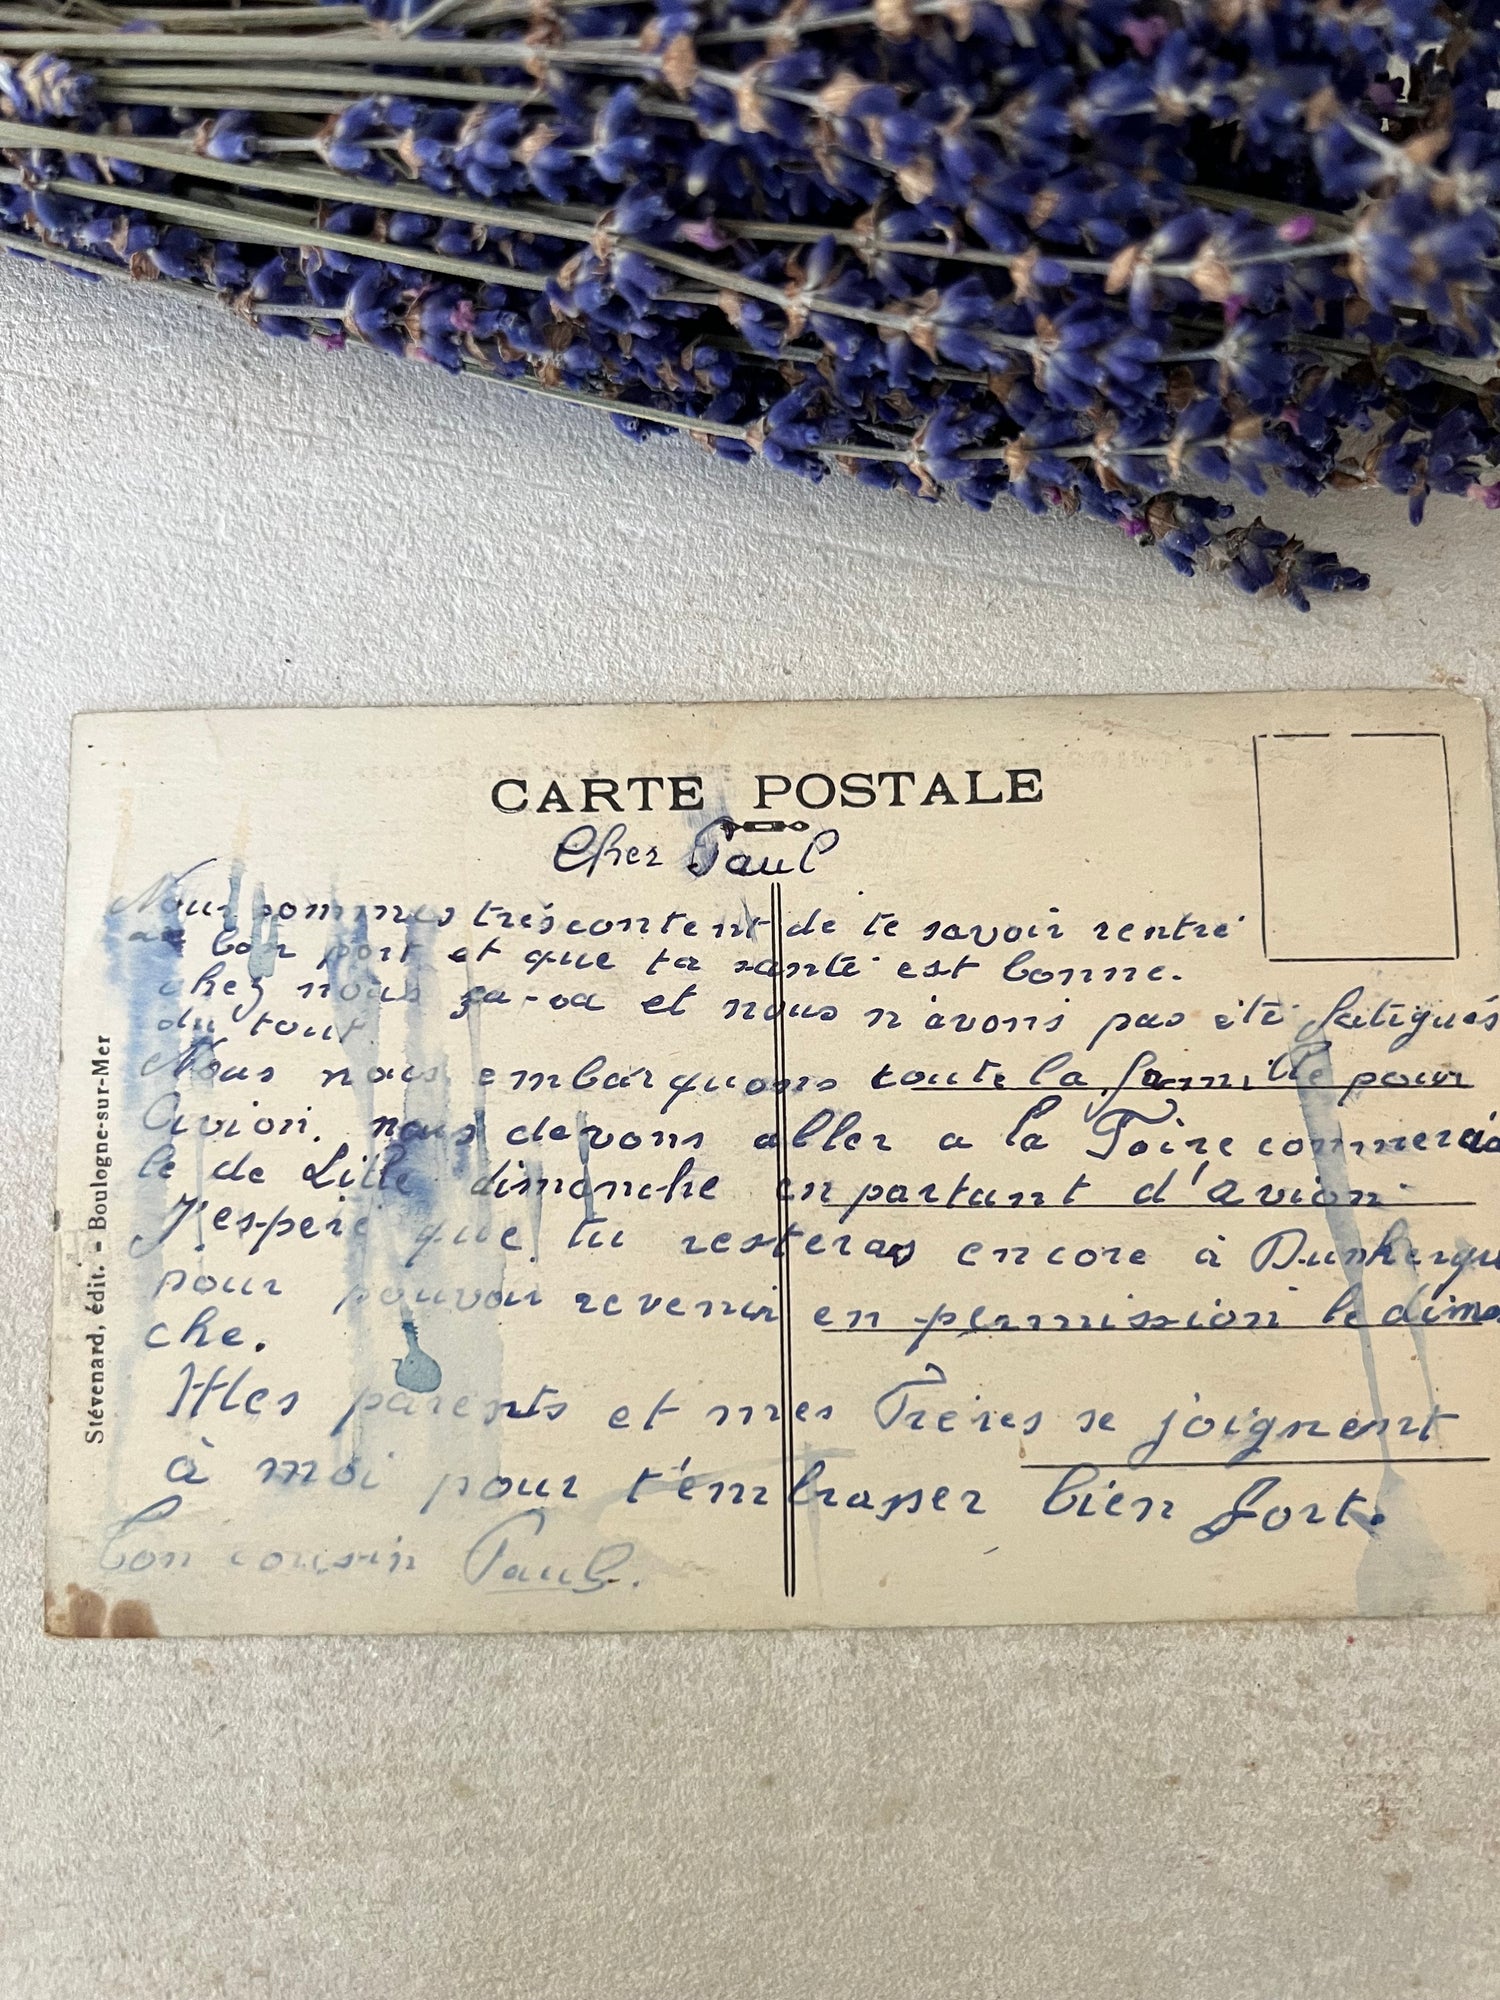 CARTE POSTALE
Cher Paul
Nous sommes très content de te savoir rentré
au bon port et que ta santé est bonne.
chez nous ça-va et nous n'avons pas été fatigués
du tout
Nous nous embarquons toute la famille pour
Avion. nous devons aller a la Foire commercia
le de Lille dimanche en partant d'avion.
J'espere que tu resteras encore à Dunkerque
pour pouvoir revenir en permission le diman
che.
Mes parents et mes Frères se joignent
à moi pour t'embrasser bien fort.
bon cousin Paul.
Stévenard, édit. - Boulogne-sur-Mer